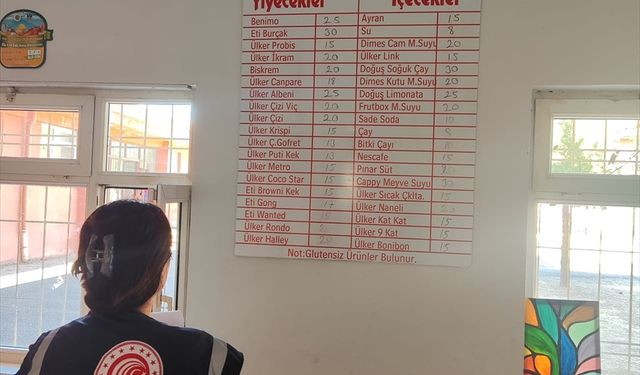 Yiyecekler İçecekler
Benimo 25 Ayran 15
Eti Burçak 30 Su 8
Ülker Probis 15 Dimes Cam M.Suyu 20
Ülker İkram 20 Ülker Link 15
Biskrem 20 Doğuş Soğuk Çay 30
Ülker Canpare 18 Dimes Kutu M.Suyu 20
Ülker Albeni 25 Doğuş Limonata 25
Ülker Çizi Viç 20 Frutbox M.Suyu 20
Ülker Çizi 20 Sade Soda 10
Ülker Krispi 15 Çay
Ülker Ç.Gofret 13 Bitki Çayı 10
Ülker Puti Kek 13 Nescafe 15
Ülker Metro 15 Pınar Süt
Ülker Coco Star 15 Cappy Meyve Suyu 30
Eti Browni Kek 15 Ülker Sıcak Çklta. 15
Eti Gong 17 Ülker Naneli
Eti Wanted 15 Ülker Kat Kat 15
Ülker Rondo Ülker 9 Kat 15
Ülker Halley 20 Ülker Bonibon 15
Not:Glutensiz Ürünler Bulunur.